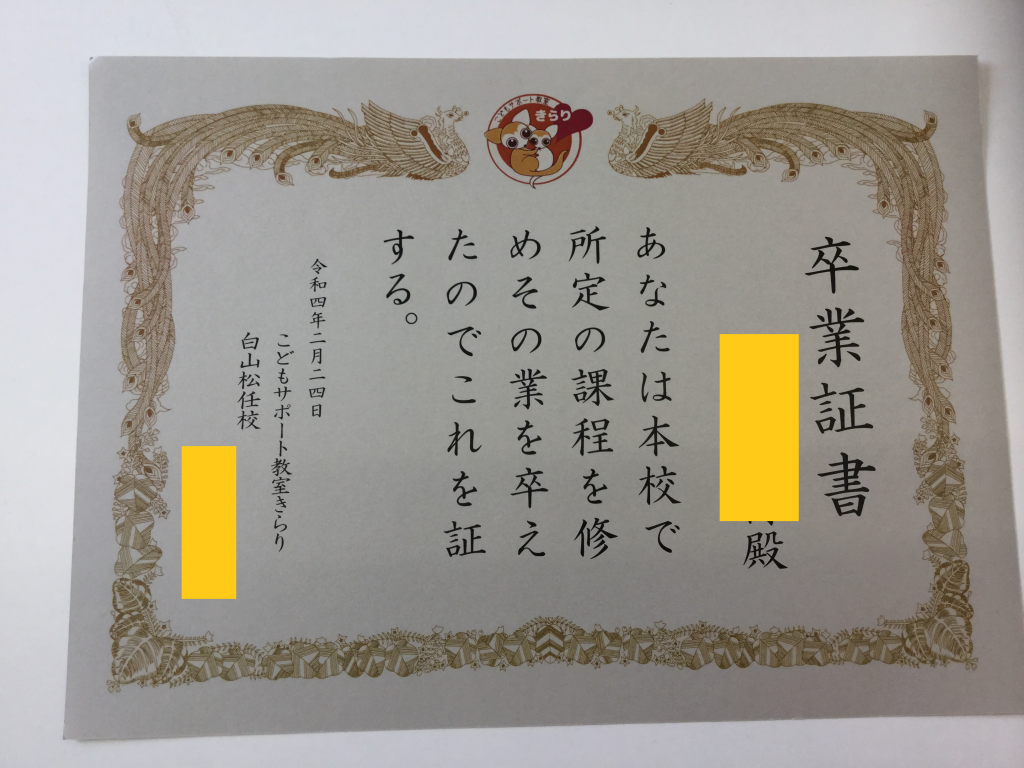 こどもサポート教室
きらり
卒業証書
殿
あなたは本校で
所定の課程を修
めその業を卒え
たのでこれを証
する。
令和四年二月二四日
こどもサポート教室きらり
白山松任校